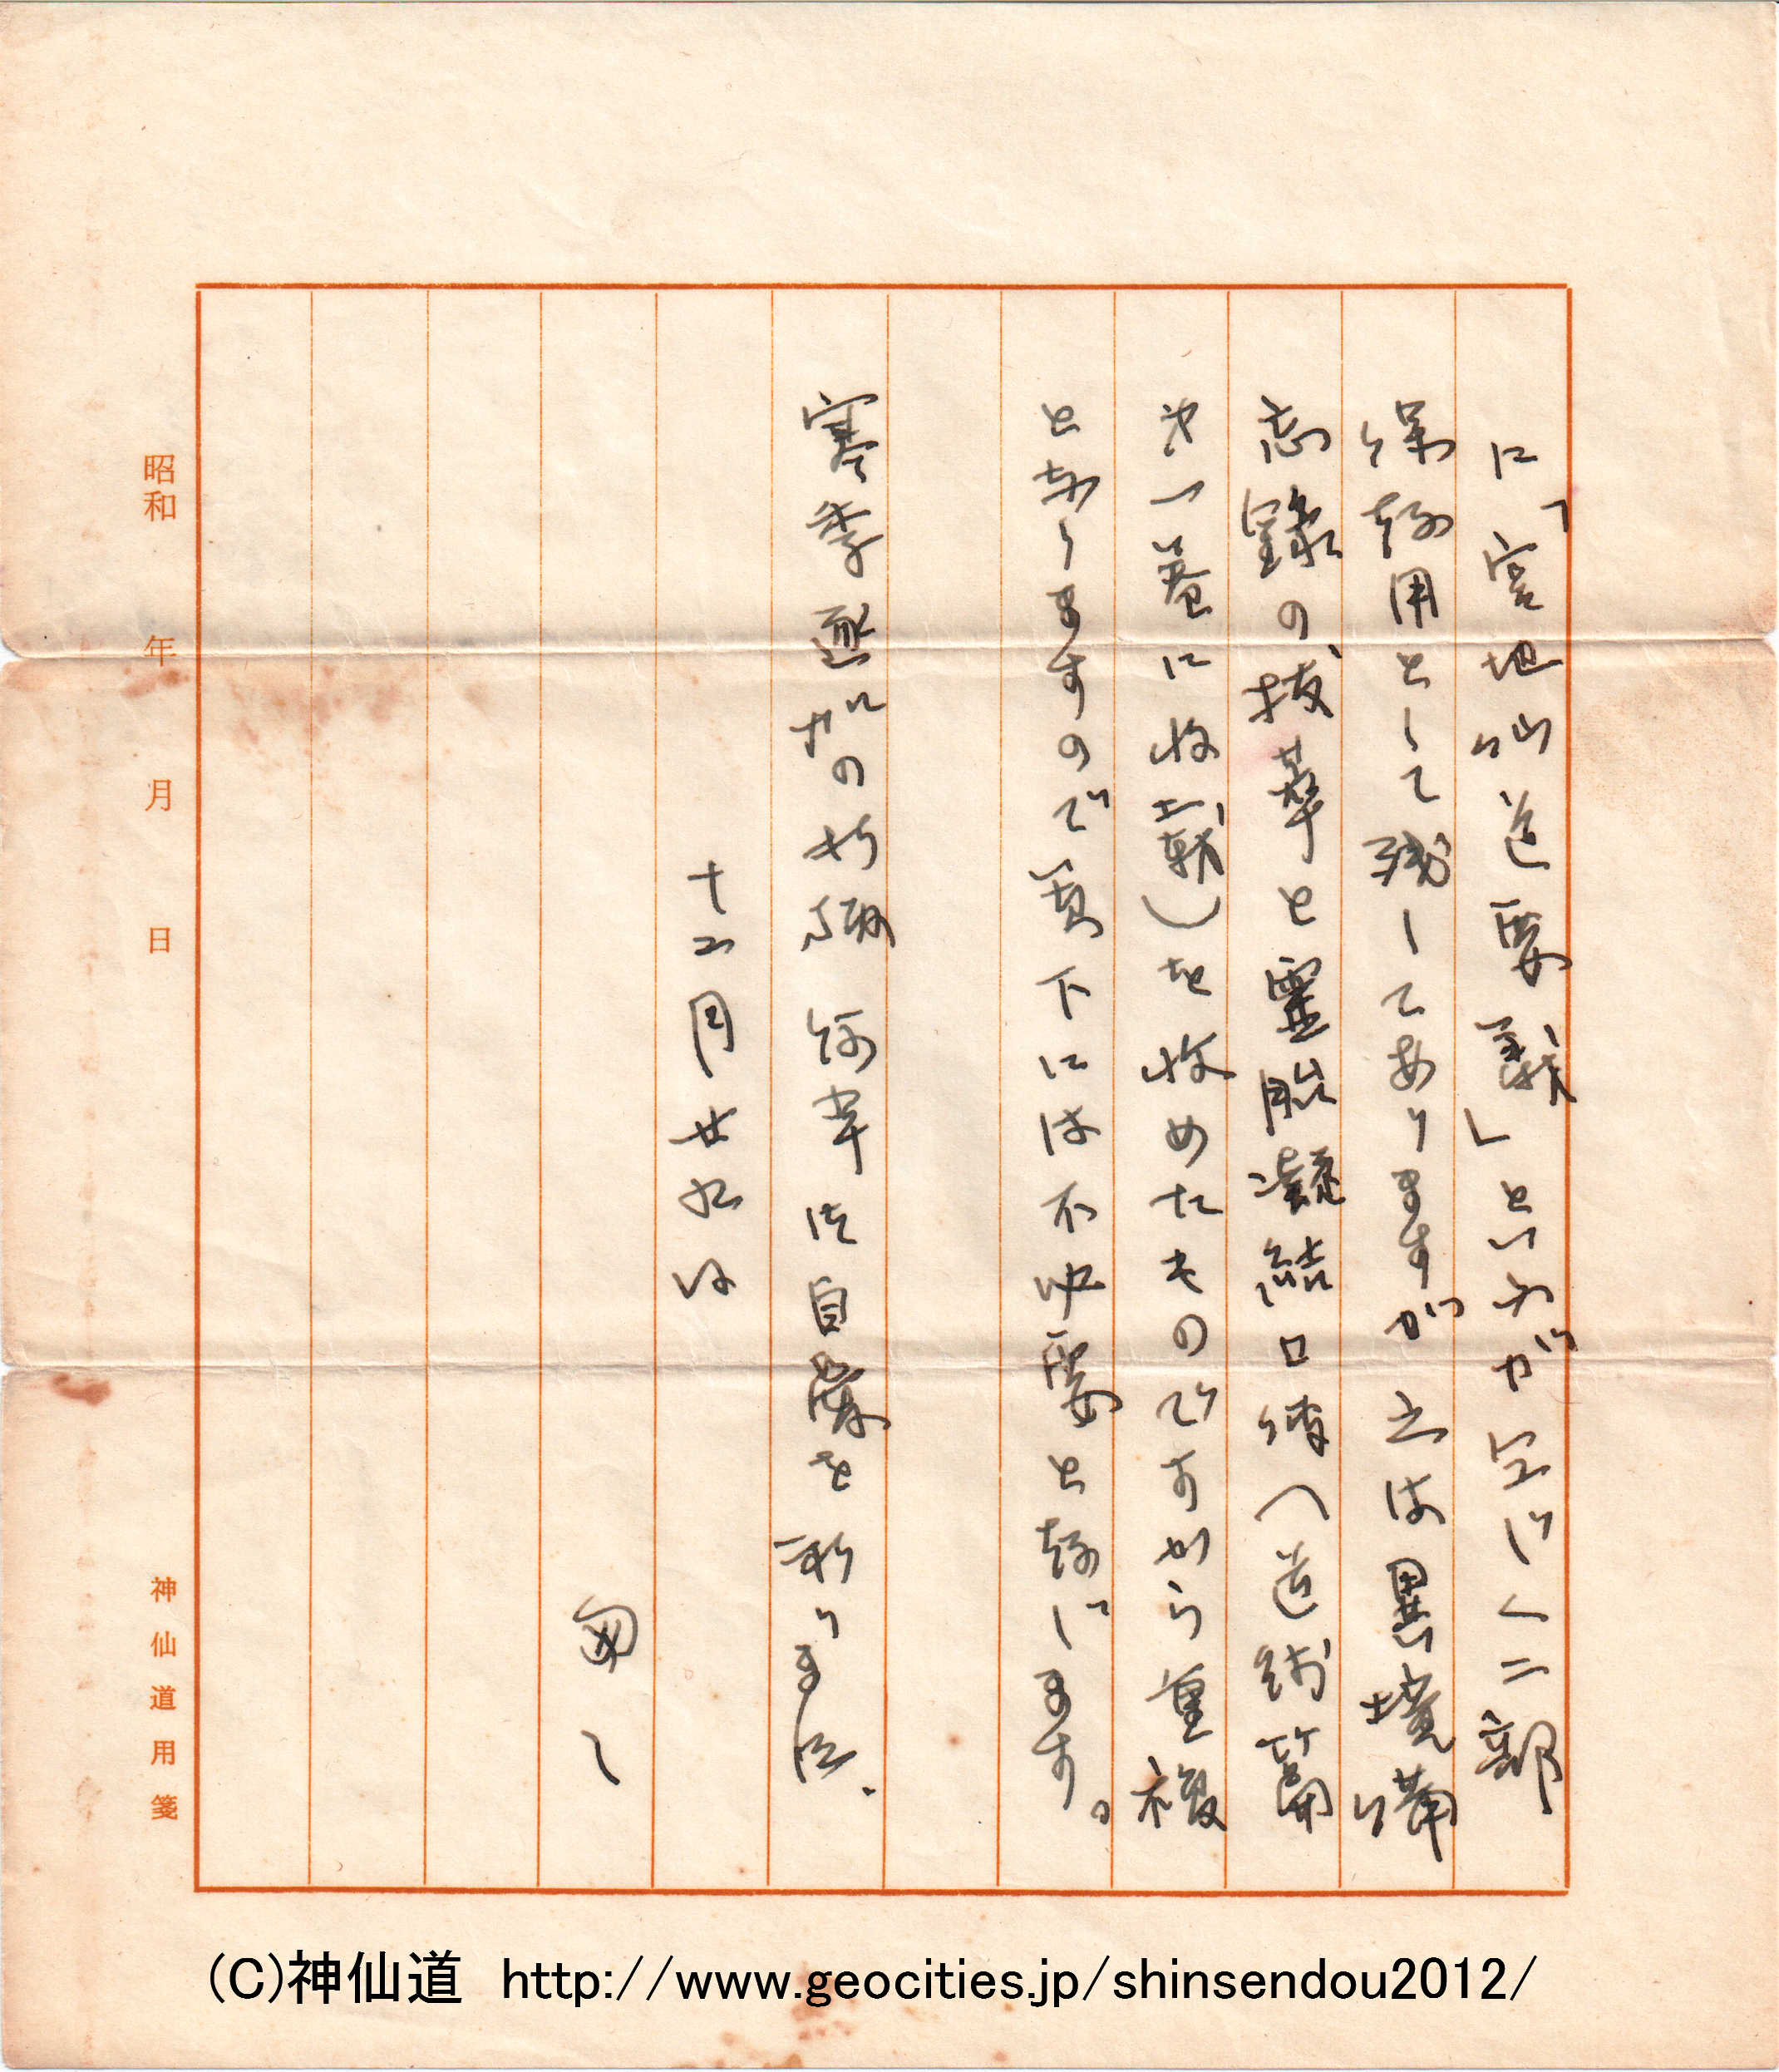 に「宮地仙道要義」といふが同じく二部
保存用として残してありますが之は異境備
忘録の抜萃と霊胎凝結口伝(道術篇
第一巻に收載)を收めたものですから重複
となりますので貴下には不必要と存じます。
寒季逐加の折柄何卒御自愛を祈ります。
十二月廿九日
匆々
昭和 年 月 日
神仙道用箋
(C)神仙道 http://www.geocities.jp/shinsendou2012/